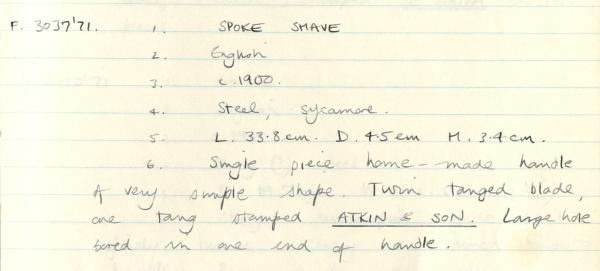 F. 3037'71. 1. SPOKE SHAVE
2. English
3. c.1900.
4. Steel, sycamore.
5. L. 33.8cm. D. 4.5cm H. 3.4cm.
6. Single piece home-made handle
A very simple shape. Twin tanged blade,
one tang stamped ATKIN & SON. Large hole
bored in one end of handle.